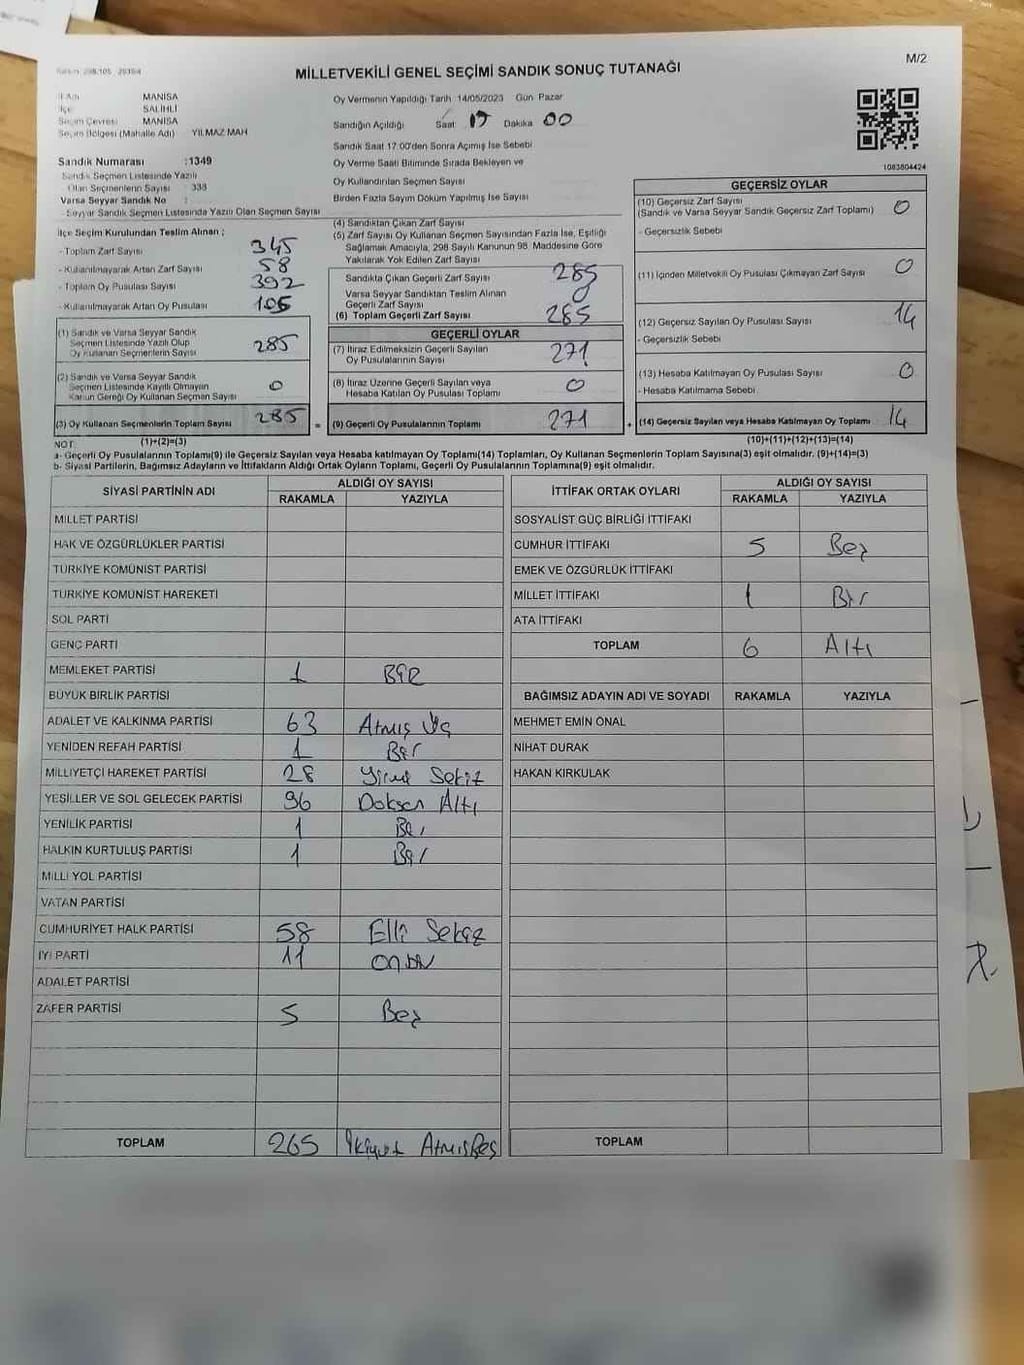 MİLLETVEKİLİ GENEL SEÇİMİ SANDIK SONUÇ TUTANAĞI
M/2
MANİSA
SALİHLİ
Seçim Çevresi MANİSA
Seçim Bölgesi (Mahalle Adı) YILMAZ MAH
Sandık Numarası :1349
Sandık Seçmen Listesinde Yazılı
Olan Seçmenlerin Sayısı : 338
Varsa Seyyar Sandık No :
Seyyar Sandık Seçmen Listesinde Yazılı Olan Seçmen Sayısı
Oy Vermenin Yapıldığı Tarih 14/05/2023 Gün Pazar
Sandığın Açıldığı Saat 17 Dakika 00
Sandık Saat 17:00'den Sonra Açımış İse Sebebi
Oy Verme Saati Bitiminde Sırada Bekleyen ve
Oy Kullandırılan Seçmen Sayısı
Birden Fazla Sayım Döküm Yapılmış İse Sayısı
1083804424
İlçe Seçim Kurulundan Teslim Alınan ;
- Toplam Zarf Sayısı 345
- Kullanılmayarak Artan Zarf Sayısı 58
- Toplam Oy Pusulası Sayısı 392
- Kullanılmayarak Artan Oy Pusulası 105
(1) Sandık ve Varsa Seyyar Sandık
Seçmen Listesinde Yazılı Olup
Oy Kullanan Seçmenlerin Sayısı 285
(2) Sandık ve Varsa Seyyar Sandık
Seçmen Listesinde Kayıtlı Olmayan
Kanun Gereği Oy Kullanan Seçmen Sayısı 0
(3) Oy Kullanan Seçmenlerin Toplam Sayısı 285 =
(4) Sandıktan Çıkan Zarf Sayısı
(5) Zarf Sayısı Oy Kullanan Seçmen Sayısından Fazla İse, Eşitliği
Sağlamak Amacıyla, 298 Sayılı Kanunun 98. Maddesine Göre
Yakılarak Yok Edilen Zarf Sayısı
Sandıkta Çıkan Geçerli Zarf Sayısı 285
Varsa Seyyar Sandıktan Teslim Alınan
Geçerli Zarf Sayısı 0
(6) Toplam Geçerli Zarf Sayısı 285
GEÇERLİ OYLAR
(7) İtiraz Edilmeksizin Geçerli Sayılan
Oy Pusulalarının Sayısı 271
(8) İtiraz Üzerine Geçerli Sayılan veya
Hesaba Katılan Oy Pusulası Toplamı 0
(9) Geçerli Oy Pusulalarının Toplamı 271 +
GEÇERSİZ OYLAR
(10) Geçersiz Zarf Sayısı
(Sandık ve Varsa Seyyar Sandık Geçersiz Zarf Toplamı) 0
- Geçersizlik Sebebi
(11) İçinden Milletvekili Oy Pusulası Çıkmayan Zarf Sayısı 0
(12) Geçersiz Sayılan Oy Pusulası Sayısı 14
- Geçersizlik Sebebi
(13) Hesaba Katılmayan Oy Pusulası Sayısı 0
- Hesaba Katılmama Sebebi
(14) Geçersiz Sayılan veya Hesaba Katılmayan Oy Toplamı 14
NOT: (1)+(2)=(3) (10)+(11)+(12)+(13)=(14)
a- Geçerli Oy Pusulalarının Toplamı(9) ile Geçersiz Sayılan veya Hesaba katılmayan Oy Toplamı(14) Toplamları, Oy Kullanan Seçmenlerin Toplam Sayısına(3) eşit olmalıdır. (9)+(14)=(3)
b- Siyasi Partilerin, Bağımsız Adayların ve İttifakların Aldığı Ortak Oyların Toplamı, Geçerli Oy Pusulalarının Toplamına(9) eşit olmalıdır.
SİYASİ PARTİNİN ADI ALDIĞI OY SAYISI
RAKAMLA YAZIYLA
MİLLET PARTİSİ
HAK VE ÖZGÜRLÜKLER PARTİSİ
TÜRKİYE KOMÜNİST PARTİSİ
TÜRKİYE KOMÜNİST HAREKETİ
SOL PARTİ
GENÇ PARTİ
MEMLEKET PARTİSİ 1 BİR
BÜYÜK BİRLİK PARTİSİ
ADALET VE KALKINMA PARTİSİ 63 Atmış Üç
YENİDEN REFAH PARTİSİ 1 Bir
MİLLİYETÇİ HAREKET PARTİSİ 28 Yirmi Sekiz
YEŞİLLER VE SOL GELECEK PARTİSİ 96 Doksan Altı
YENİLİK PARTİSİ 1 Bir
HALKIN KURTULUŞ PARTİSİ 1 Bir
MİLLİ YOL PARTİSİ
VATAN PARTİSİ
CUMHURİYET HALK PARTİSİ 58 Elli Sekiz
İYİ PARTİ 11 onbir
ADALET PARTİSİ
ZAFER PARTİSİ 5 Beş
TOPLAM 265 İkiyüz Atmışbeş
İTTİFAK ORTAK OYLARI ALDIĞI OY SAYISI
RAKAMLA YAZIYLA
SOSYALİST GÜÇ BİRLİĞİ İTTİFAKI
CUMHUR İTTİFAKI 5 Beş
EMEK VE ÖZGÜRLÜK İTTİFAKI
MİLLET İTTİFAKI 1 Bir
ATA İTTİFAKI
TOPLAM 6 Altı
BAĞIMSIZ ADAYIN ADI VE SOYADI RAKAMLA YAZIYLA
MEHMET EMİN ÖNAL
NİHAT DURAK
HAKAN KIRKULAK
TOPLAM